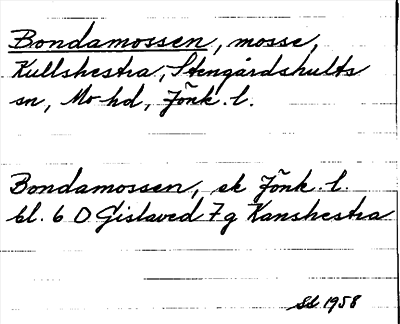 Bondamossen, mosse,
Kullshestra, Stengårdshults
sn, Mo hd, Jönk. l.
Bondamossen, ek Jönk. l.
bl. 6 O Gislaved 7g Kanshestra
1958